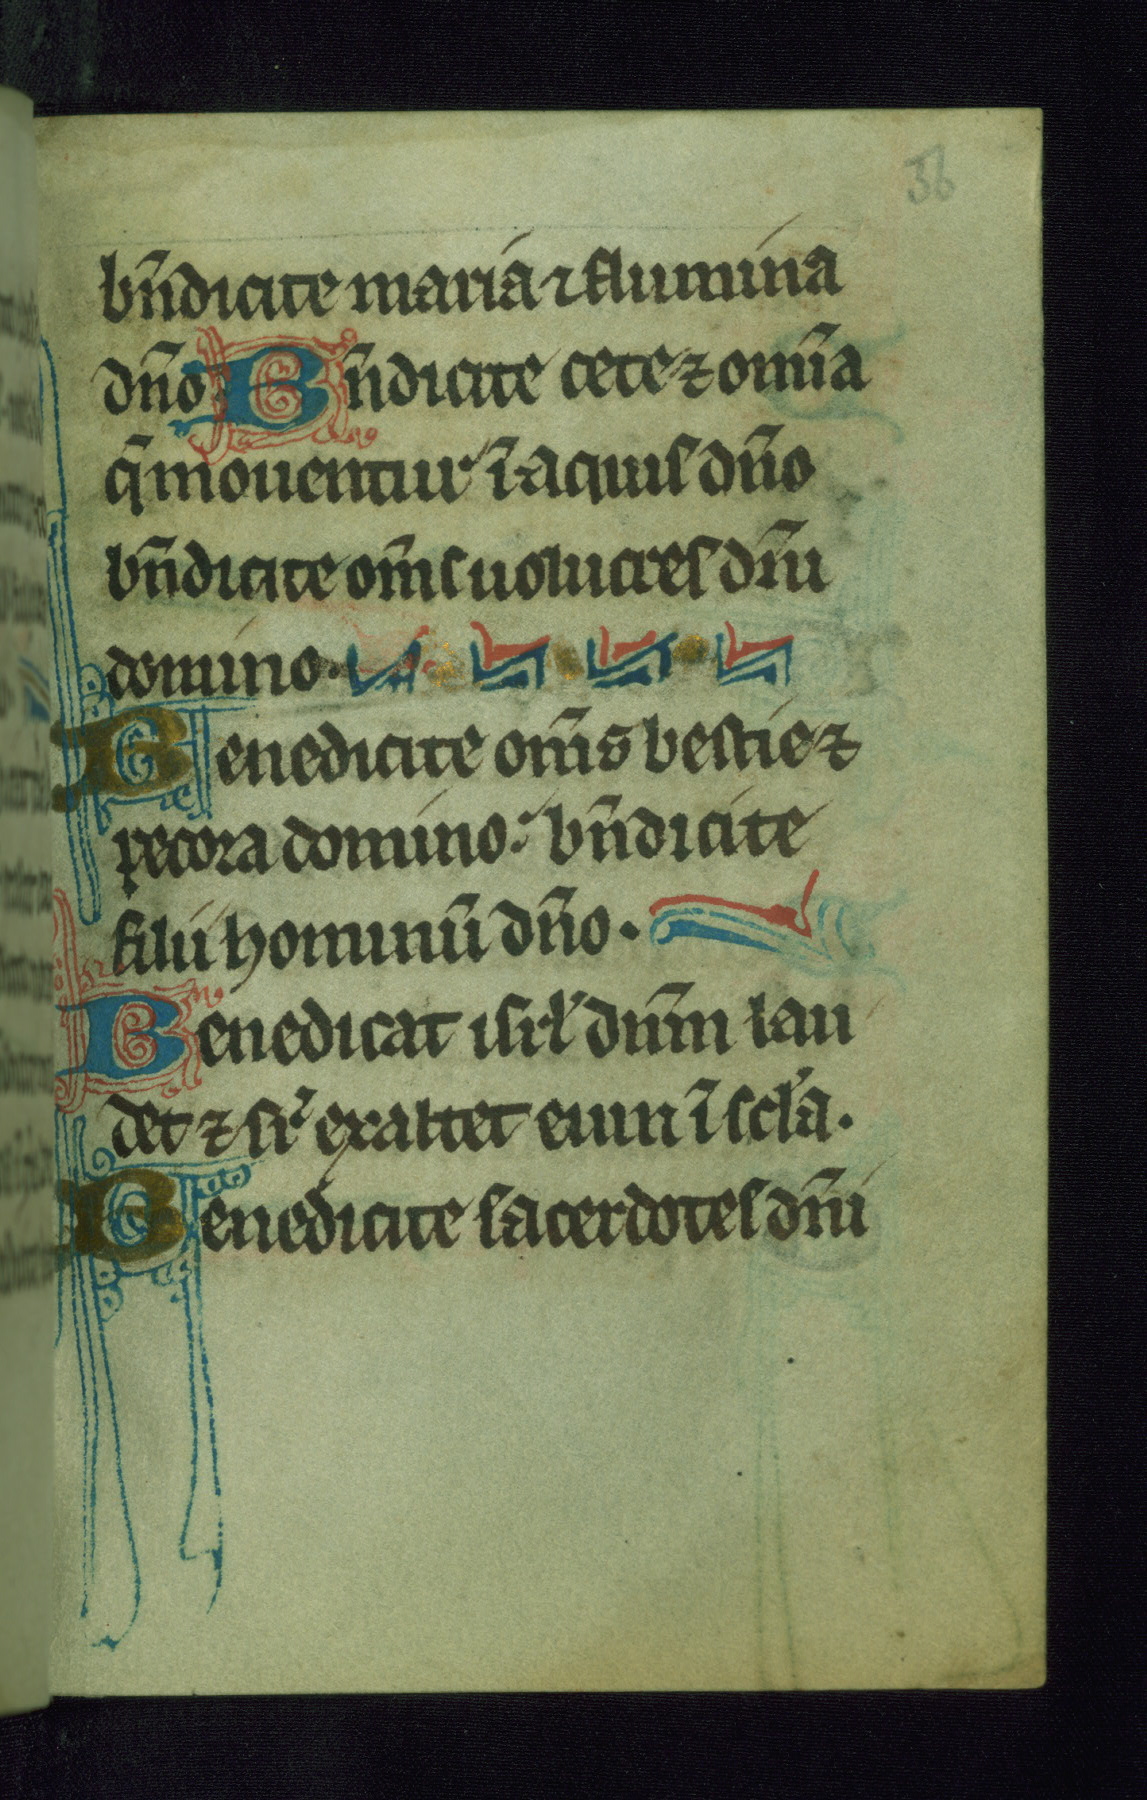 36
bn̄dicite maria ⁊ flumina
dn̄o Bn̄dicite cete ⁊ omīa
q̄ mouentur ī aquis dn̄o
bn̄dicite om̄s uolucres dn̄i
domino.
Benedicite om̄s bestie ⁊
pecora domino. bn̄dicite
filii hominū dn̄o.
Benedicat isrl̄ dn̄m lau
det ⁊ sr̄ exaltet eum ī scl̄a.
Benedicite sacerdotes dn̄i